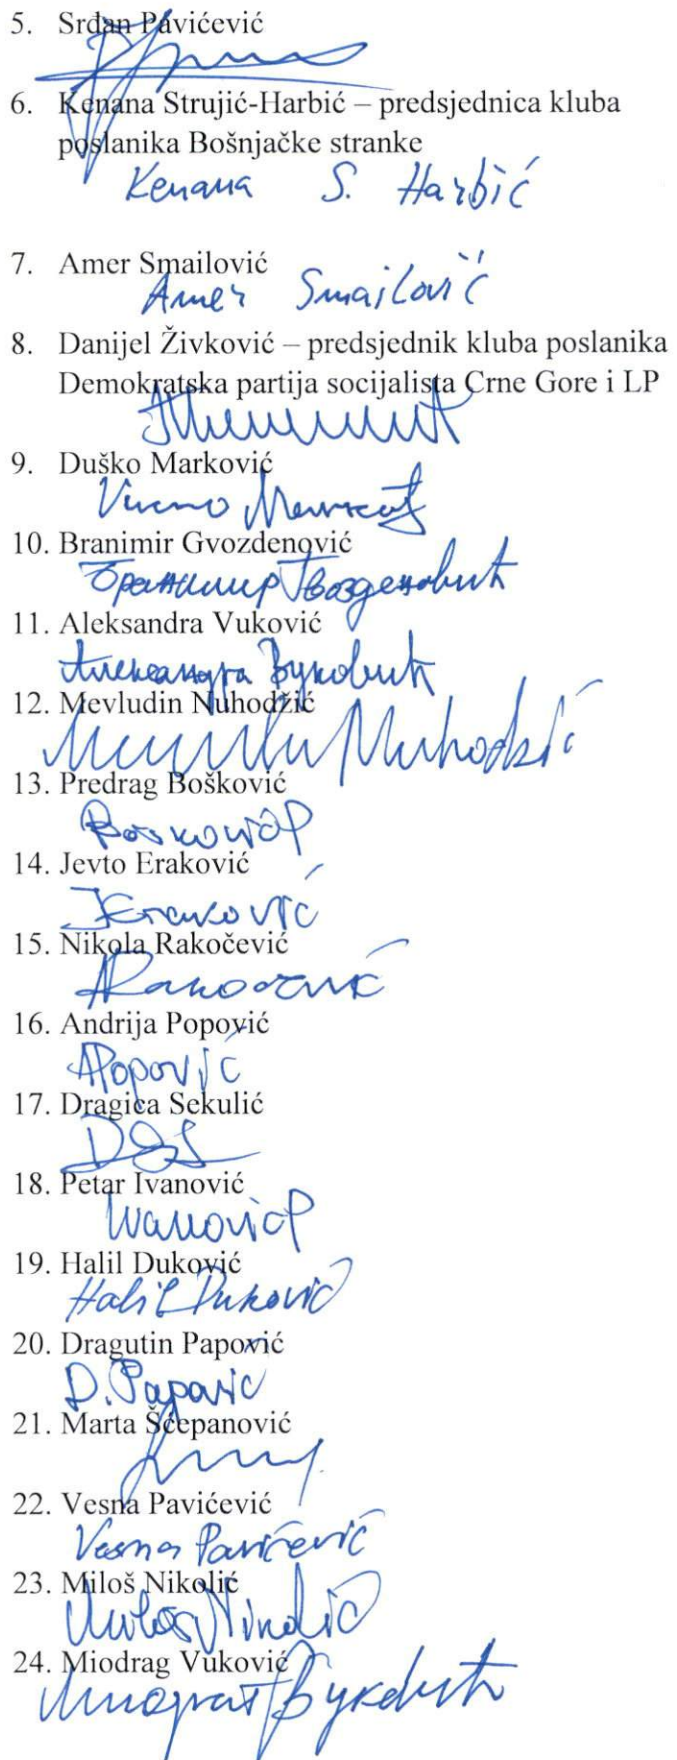 5. Srđan Pavićević
6. Kenana Strujić-Harbić – predsjednica kluba
poslanika Bošnjačke stranke
Kenana S. Harbić
7. Amer Smailović
Amer Smailović
8. Danijel Živković – predsjednik kluba poslanika
Demokratska partija socijalista Crne Gore i LP
9. Duško Marković
10. Branimir Gvozdenović
Бранимир Гвозденовић
11. Aleksandra Vuković
Александра Вуковић
12. Mevludin Nuhodžić
Nuhodžić
13. Predrag Bošković
Bošković P
14. Jevto Eraković
JEraković
15. Nikola Rakočević
NRakočević
16. Andrija Popović
APopović
17. Dragica Sekulić
18. Petar Ivanović
Ivanović P
19. Halil Duković
Halil Duković
20. Dragutin Papović
D. Papović
21. Marta Šćepanović
22. Vesna Pavićević
Vesna Pavićević
23. Miloš Nikolić
Miloš Nikolić
24. Miodrag Vuković
Миодраг Вуковић